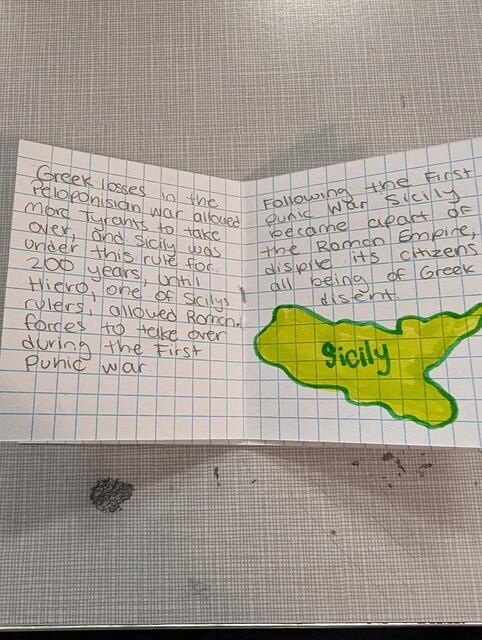 Greek losses in the
Peloponisian war allowed
more tyrants to take
over, and Sicily was
under this rule for
200 years, until
Hiero, one of Sicilys
rulers, allowed Roman
forces to take over
during the First
Punic war.
Following the First
Punic War Sicily
became apart of
the Roman Empire,
dispite its citizens
all being of Greek
disent.
Sicily